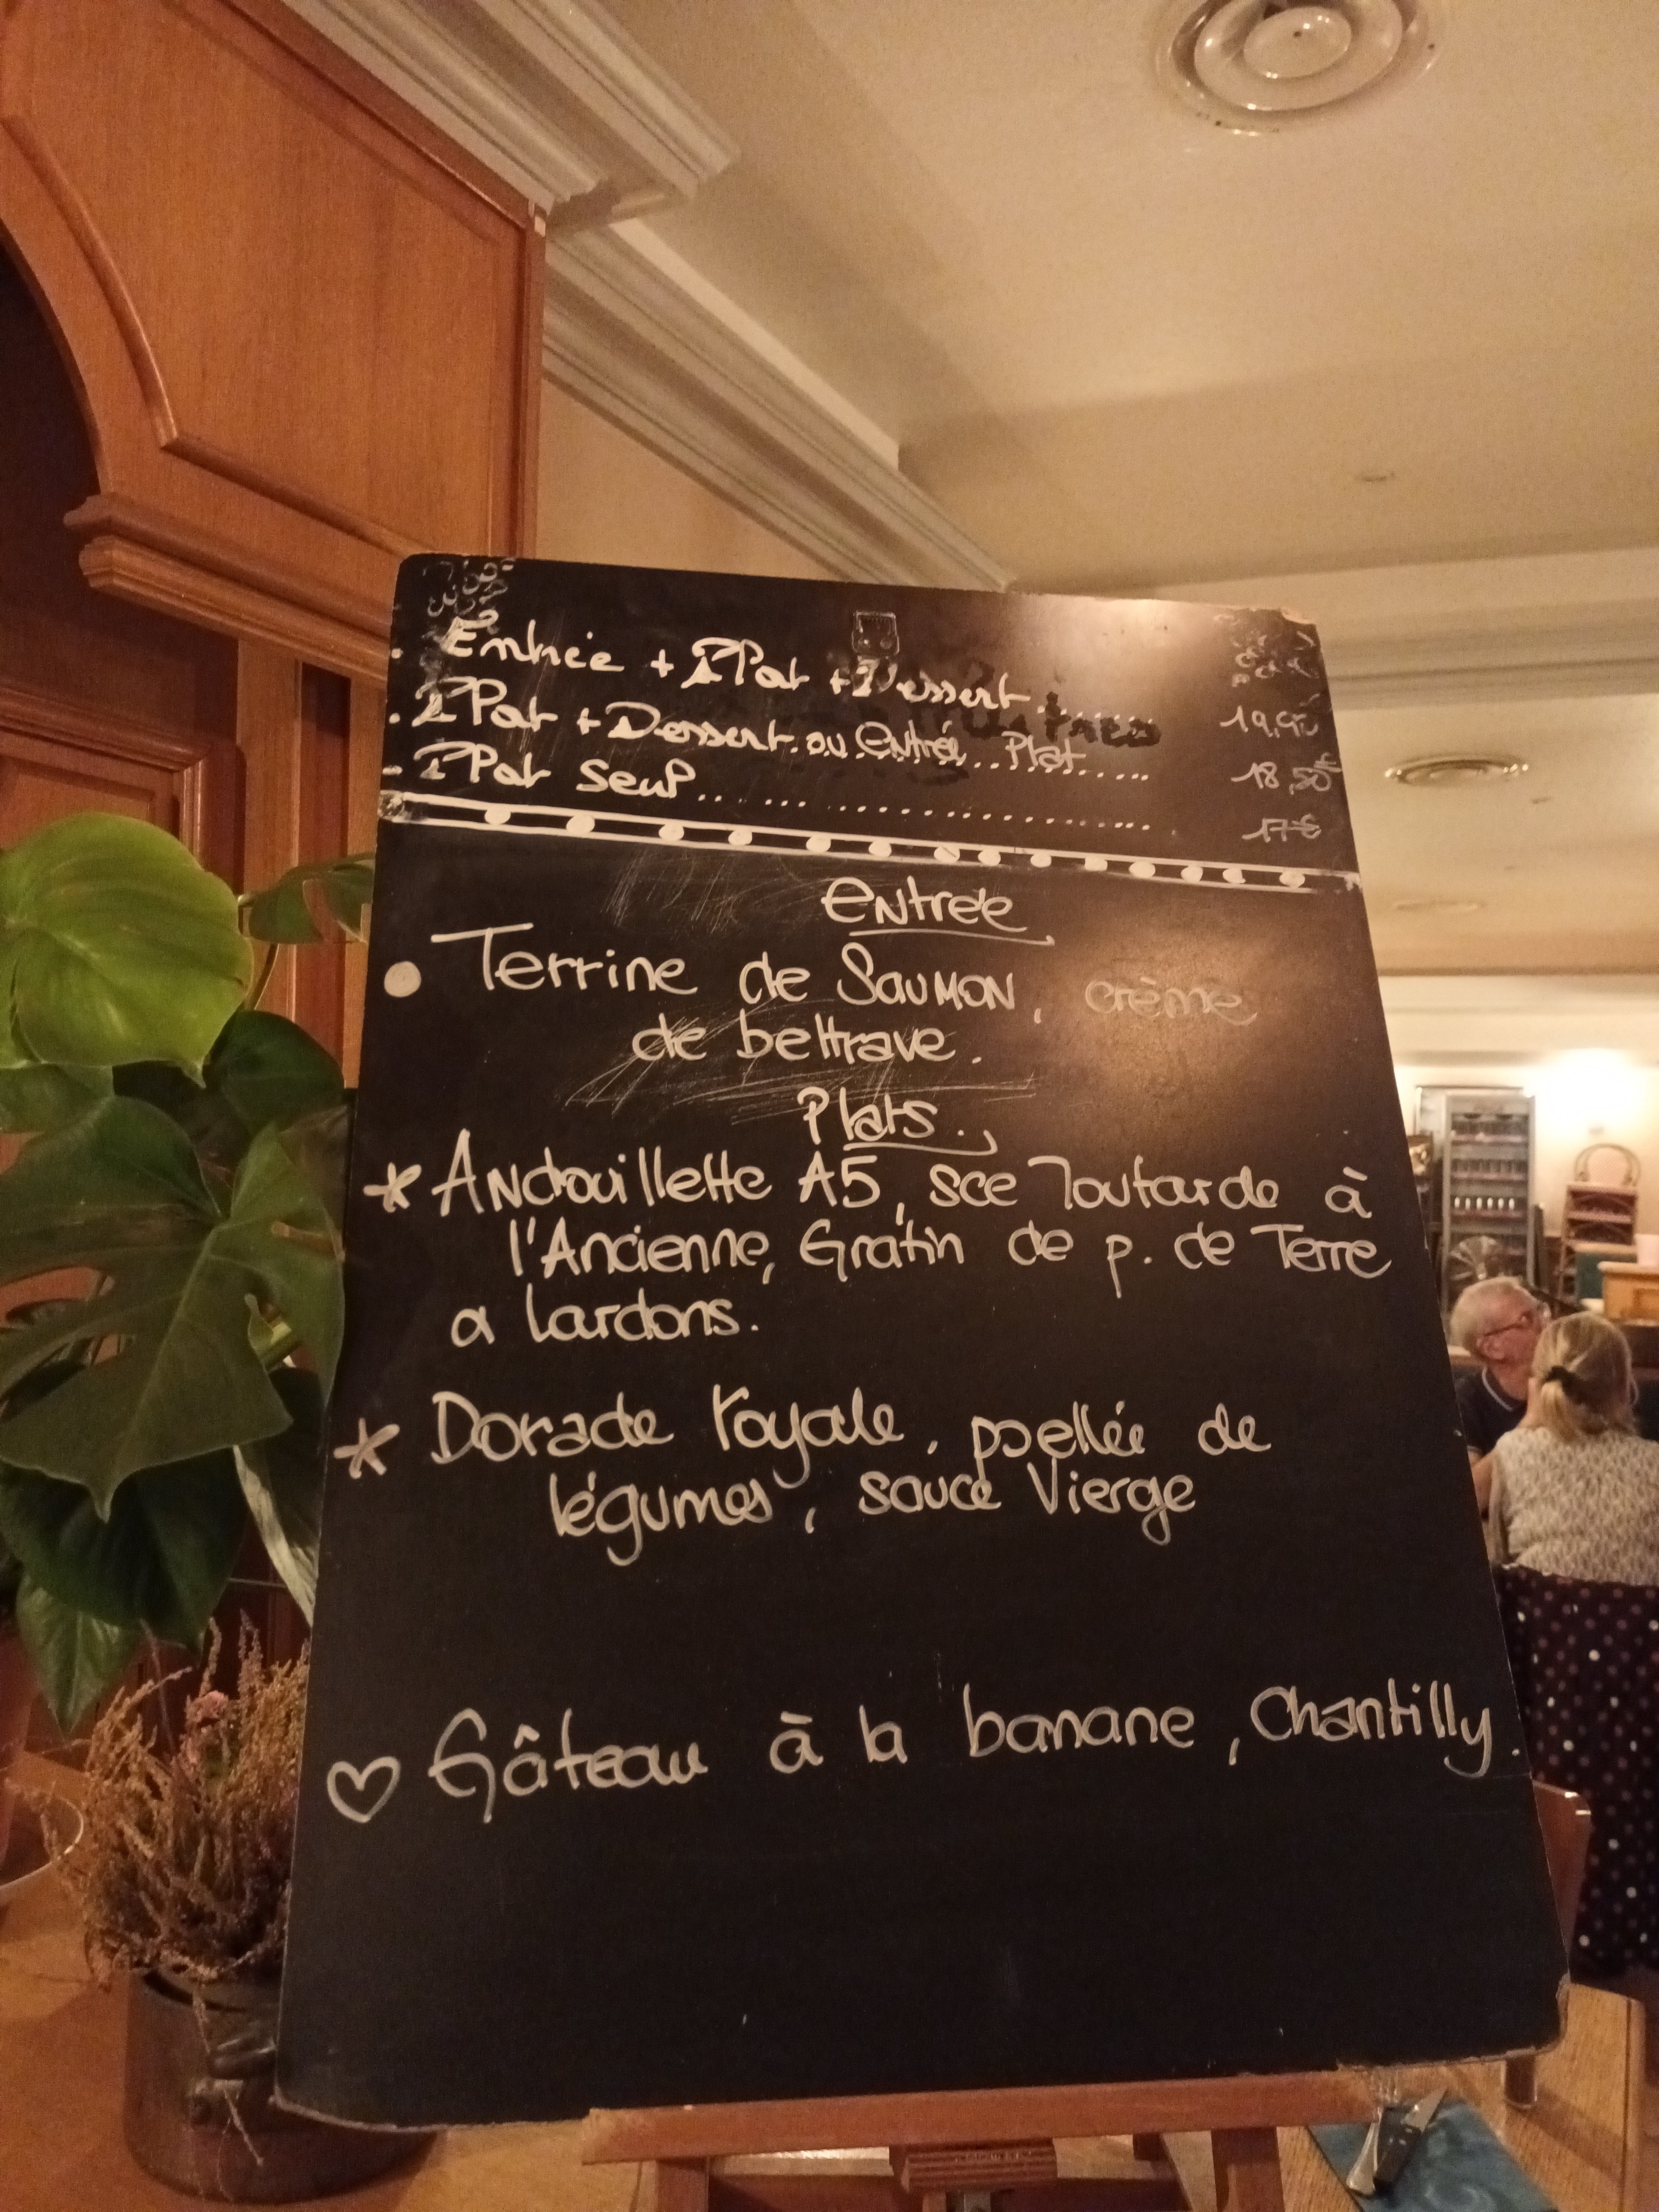 . Entrée + Plat + Dessert .......... 19,90
. Plat + Dessert ou Entrée Plat ........ 18,50€
- Plat Seul .......................... 17€
Entrée
Terrine de Saumon, crème
de bettrave.
Plats.
* Andouillette A5, sce Moutarde à
l'Ancienne, Gratin de p. de Terre
a Lardons.
* Dorade royale, poellée de
légumes, sauce Vierge
♡ Gâteau à la banane, Chantilly.